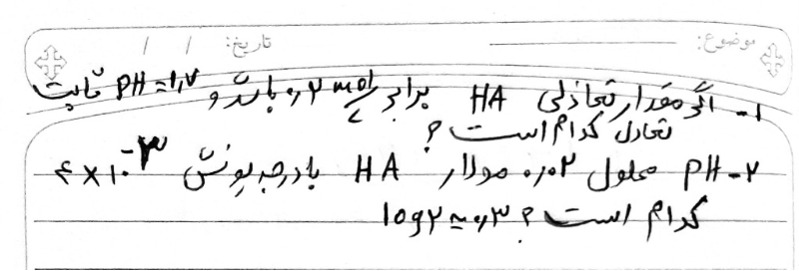 موضوع: تاریخ: / /
۱- اگر مقدار تعادلی HA برابر ۰٫۲ mol/L باشد و PH=۱٫۷ ثابت
تعادل کدام است؟
۲- PH محلول ۰٫۰۲ مولار HA با درجه یونش ۴×۱۰^-۳
کدام است؟ log۲≈۰٫۳